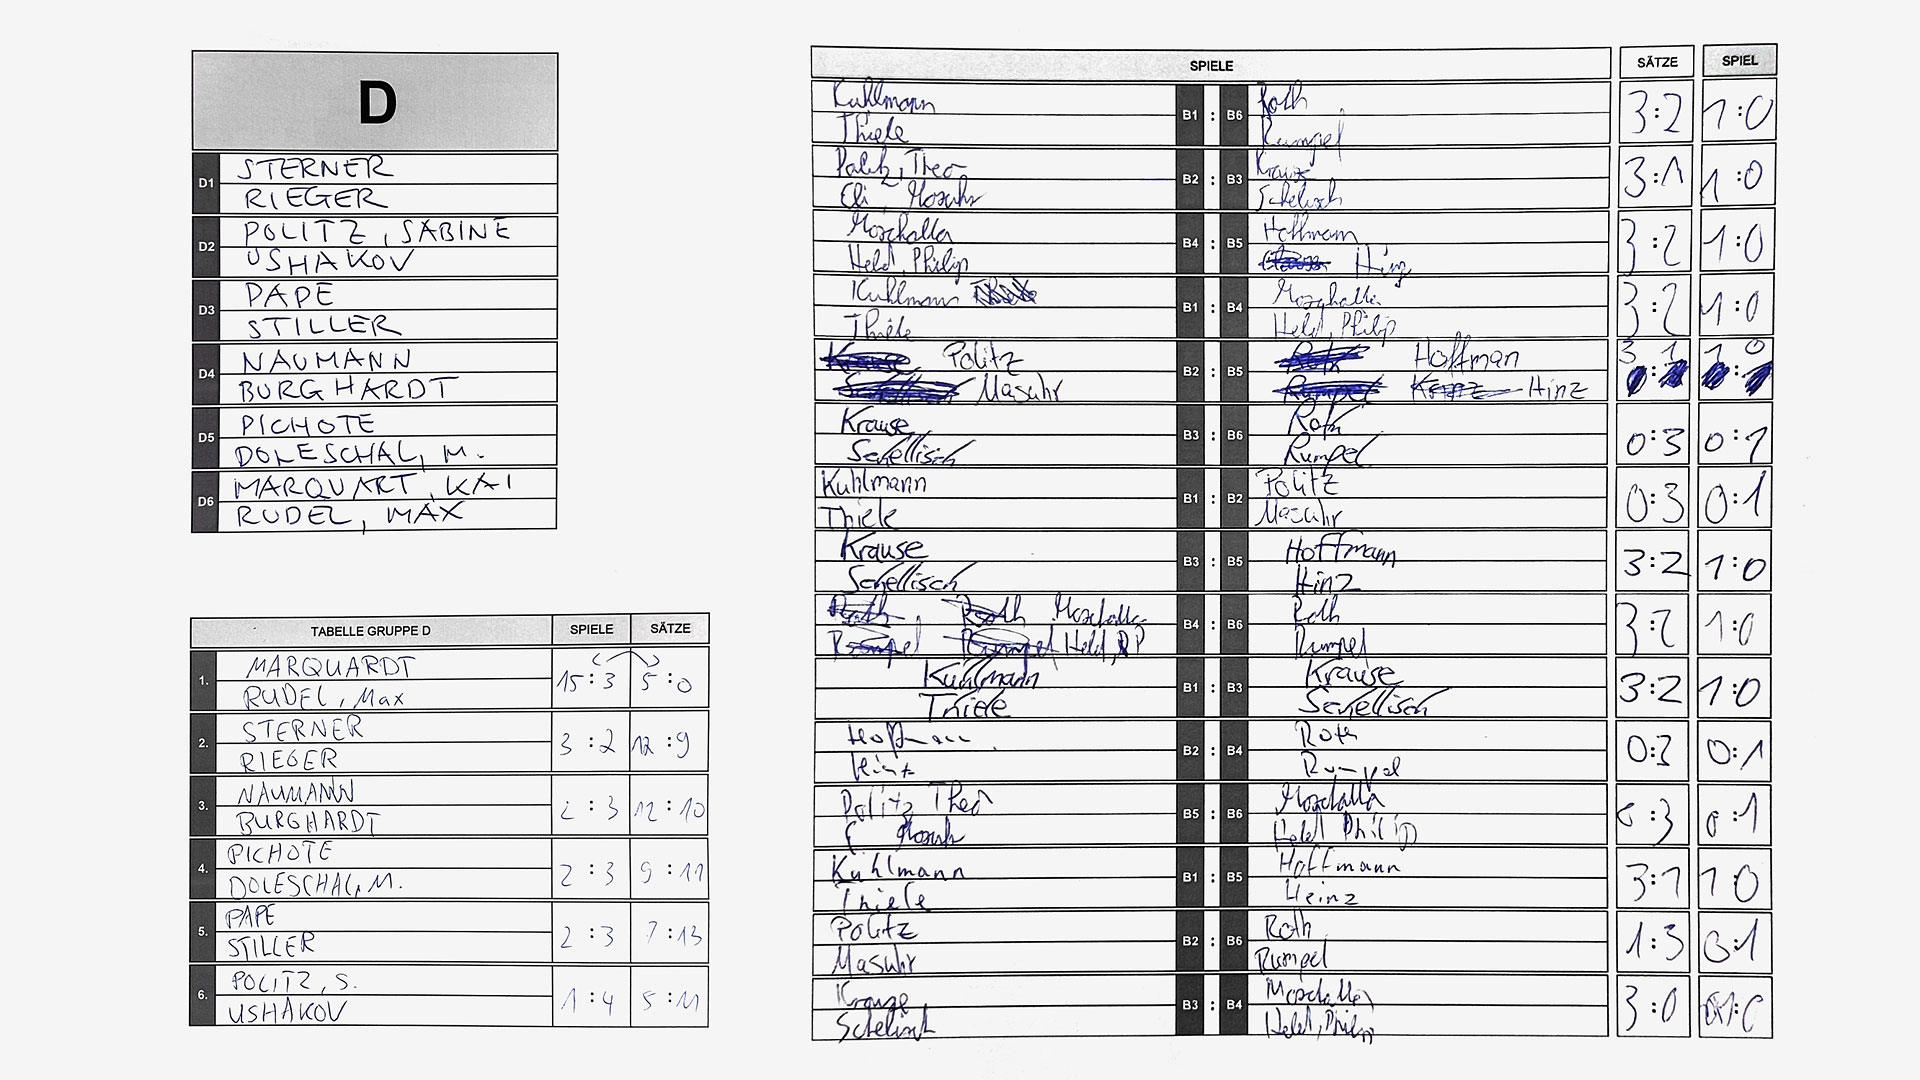 D
D1
STERNER
RIEGER
D2
POLITZ, SABINE
USHAKOV
D3
PAPE
STILLER
D4
NAUMANN
BURGHARDT
D5
PICHOTE
DOLESCHAL, M.
D6
MARQUART, KAI
RUDEL, MAX
TABELLE GRUPPE D SPIELE SÄTZE
1. MARQUARDT
RUDEL, Max
15:3 5:0
2. STERNER
RIEGER
3:2 12:9
3. NAUMANN
BURGHARDT
2:3 12:10
4. PICHOTE
DOLESCHAL, M.
2:3 9:11
5. PAPE
STILLER
2:3 7:13
6. POLITZ, S.
USHAKOV
1:4 5:11
SPIELE SÄTZE SPIEL
Kuhlmann B1 : B6 Roth 3:2 1:0
Thiele Rumpel
Politz, Theo B2 : B3 Krause 3:1 1:0
Eli, Masuhr Schelisch
Moschalla B4 : B5 Hoffmann 3:2 1:0
Held, Philip Hinz
Kuhlmann B1 : B4 Moschalla 3:2 1:0
Thiele Held, Philip
Politz B2 : B5 Hoffman 3:1 1:0
Masuhr Hinz
Krause B3 : B6 Roth 0:3 0:1
Schellisch Rumpel
Kuhlmann B1 : B2 Politz 0:3 0:1
Thiele Masuhr
Krause B3 : B5 Hoffmann 3:2 1:0
Schellisch Hinz
Roth Roth Moschalla B4 : B6 Roth 3:2 1:0
Rumpel Rumpel Held, P Rumpel
Kuhlmann B1 : B3 Krause 3:2 1:0
Thiele Schellisch
Hoffmann B2 : B4 Roth 0:3 0:1
Hinz Rumpel
Politz Theo B5 : B6 Moschalla 0:3 0:1
E. Masuhr Held Philip
Kuhlmann B1 : B5 Hoffmann 3:1 1:0
Thiele Heinz
Politz B2 : B6 Roth 1:3 0:1
Masuhr Rumpel
Krause B3 : B4 Moschalla 3:0 1:0
Schelisch Held, Philip